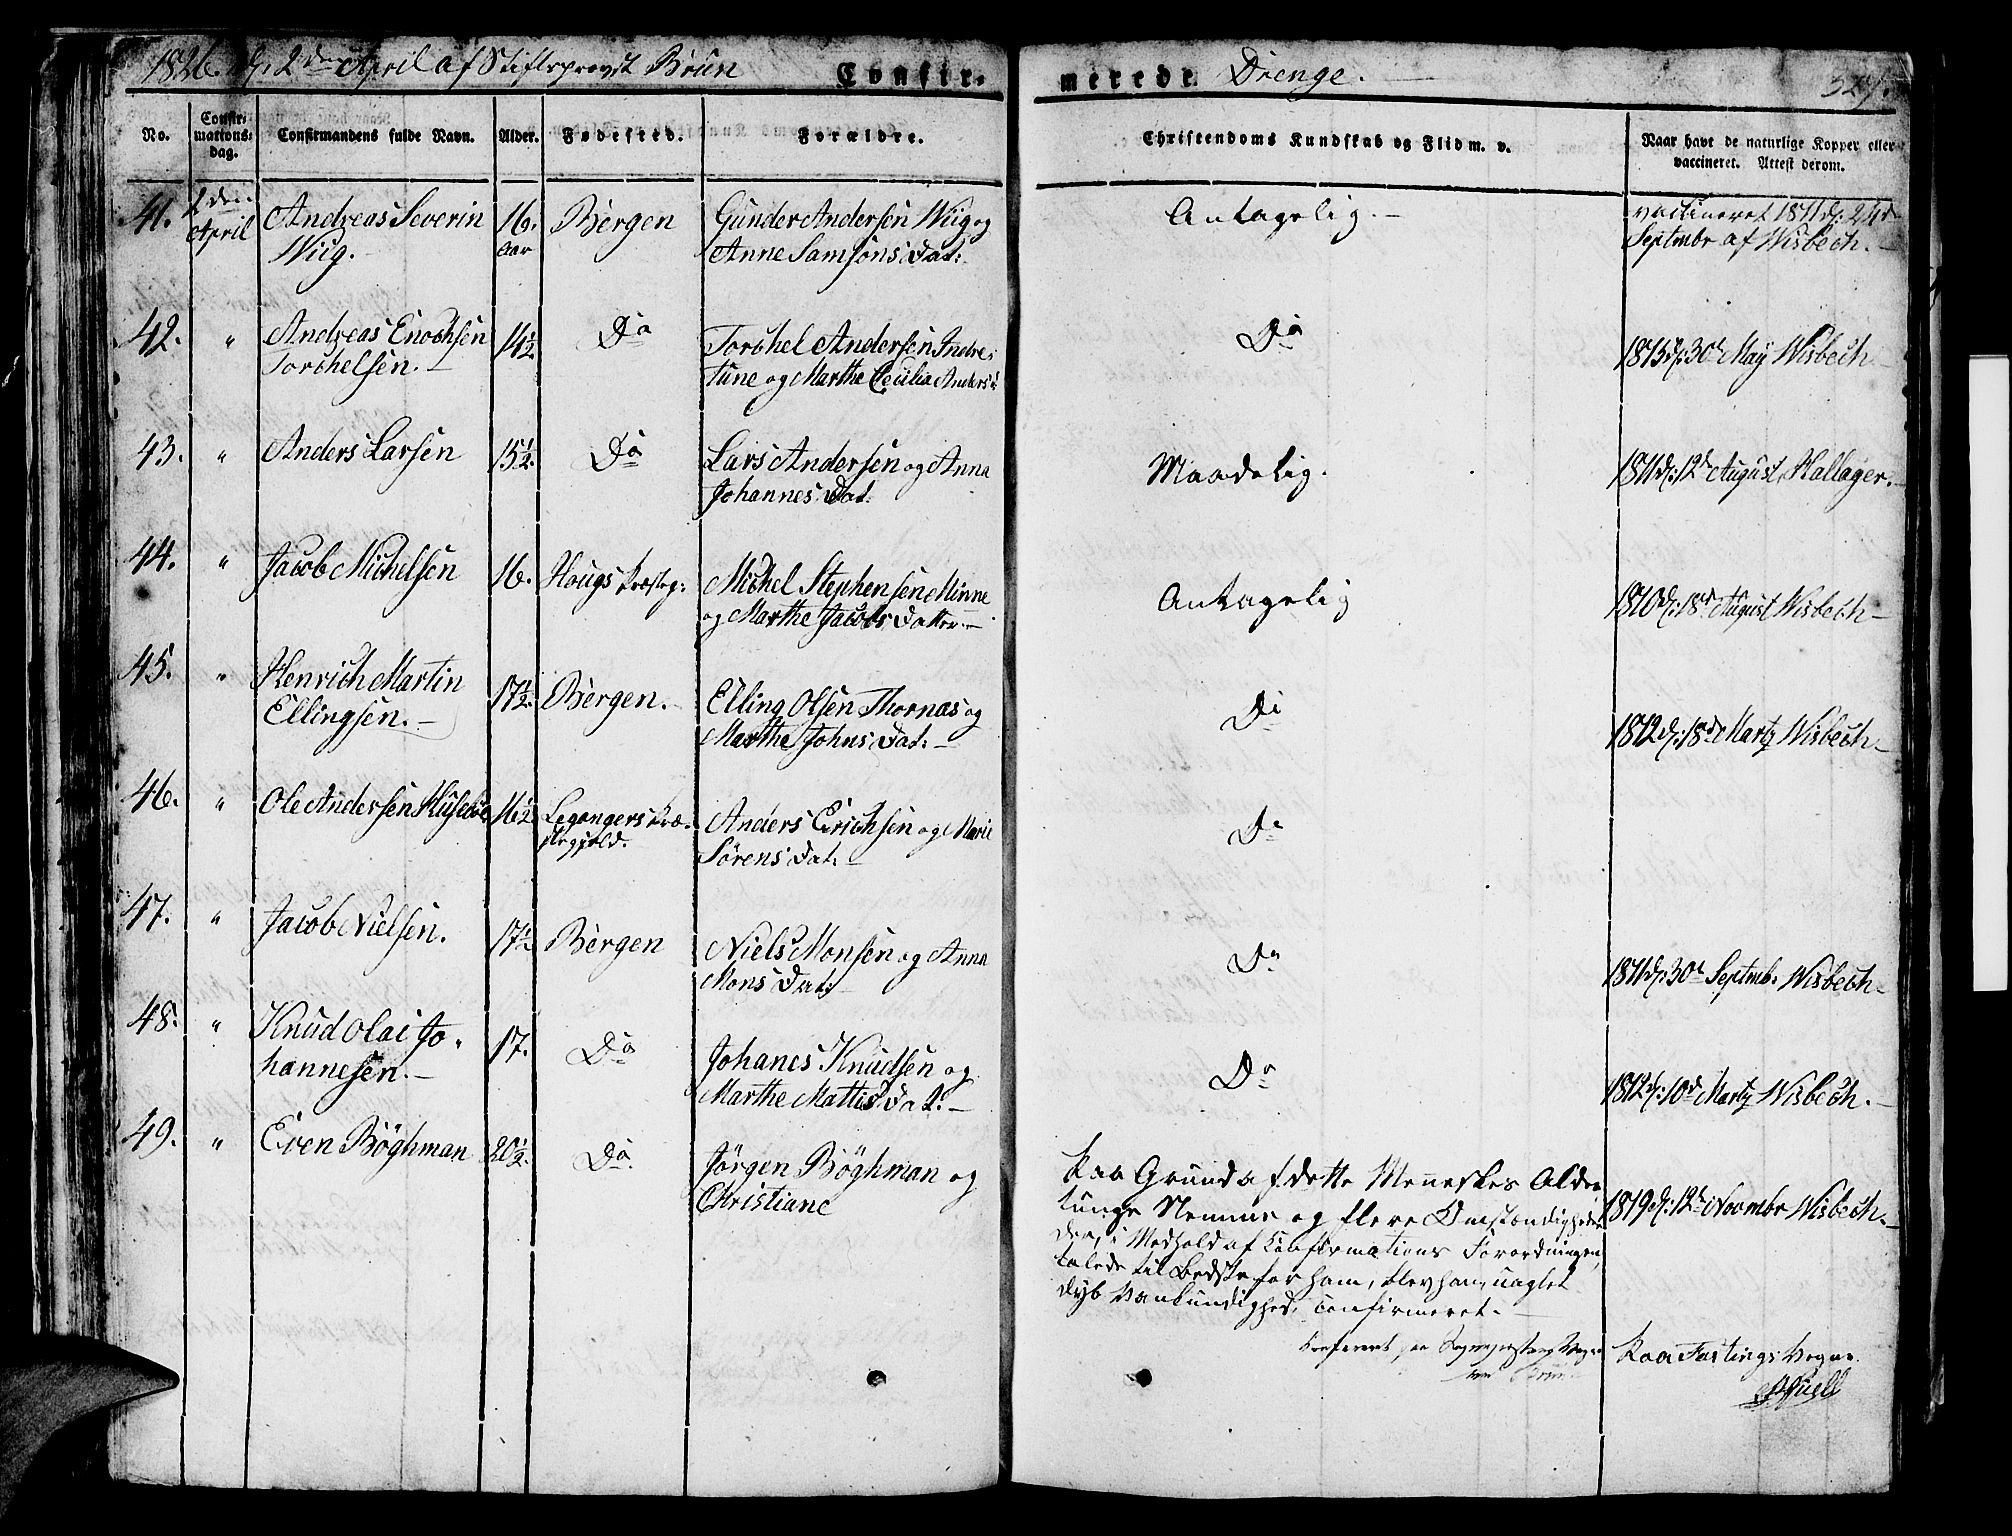 1826. d. 2den April af Stiftsprovst Brun
Confir-
merede Drenge.
327.
No.
Confir-
mations-
dag.
Confirmandens fulde Navn.
Alder.
Fødested.
Forældre.
Christendoms Kundskab og Flid m. v.
Naar havt de naturlige Kopper eller
vaccineret. Attest derom.
41. 2den April Andreas Severin Wiig. 16. aar Bergen Gunder Andersen Wiig og Anne Samsons Dat: Antagelig. vaccineret 1811 d: 24d Septmbr af Wisbech.
42. " Andreas Enochsen Torchelsen. 14½ Do Torchel Andersen Indre Tune og Marthe Cecilia Anders d: Do 1813 d: 30d May Wisbech
43. " Anders Larsen 15½. Do Lars Andersen og Anna Johannes Dat. Maadelig. 1811 d: 12d August, Hallager.
44. " Jacob Michelsen 16. Hougs Præsteg: Michel Stephensen Minne og Marthe Jacobs Datter. Antagelig 1810 d: 18d August Wisbech
45. " Henrich Martin Ellingsen. 17½. Bergen. Elling Olsen Thornas og Marthe Johns Dat: Do 1812 d: 18d Martz Wisbech
46. " Ole Andersen Husebøe 16½ Legangers Præstegjeld. Anders Erichsen og Marie Sørens Dat: Do
47. " Jacob Nielsen. 17½ Bergen Niels Monsen og Anna Mons Dat: Do 1811 d: 30d Septmb: Wisbech
48. " Knud Olai Johannesen. 17. Do Johanes Knudsen og Marthe Mattis Dat: Do 1812 d: 10d Martz Wisbech.
49. " Even Bøghman 20½. Do Jørgen Bøghman og Christiane
Paa Grund af dette Menneskes Alder
tunge Nemme og flere Omstændigheder
der, i Medhold af Confirmations Forordningen,
talede til Bedste for ham, blev han, uagtet
dyb Vankundighed, confirmeret.
1819 d: 12te Novmbr Wisbech.
Confereret paa Vegne
Brun
Paa Fastings Vegne.